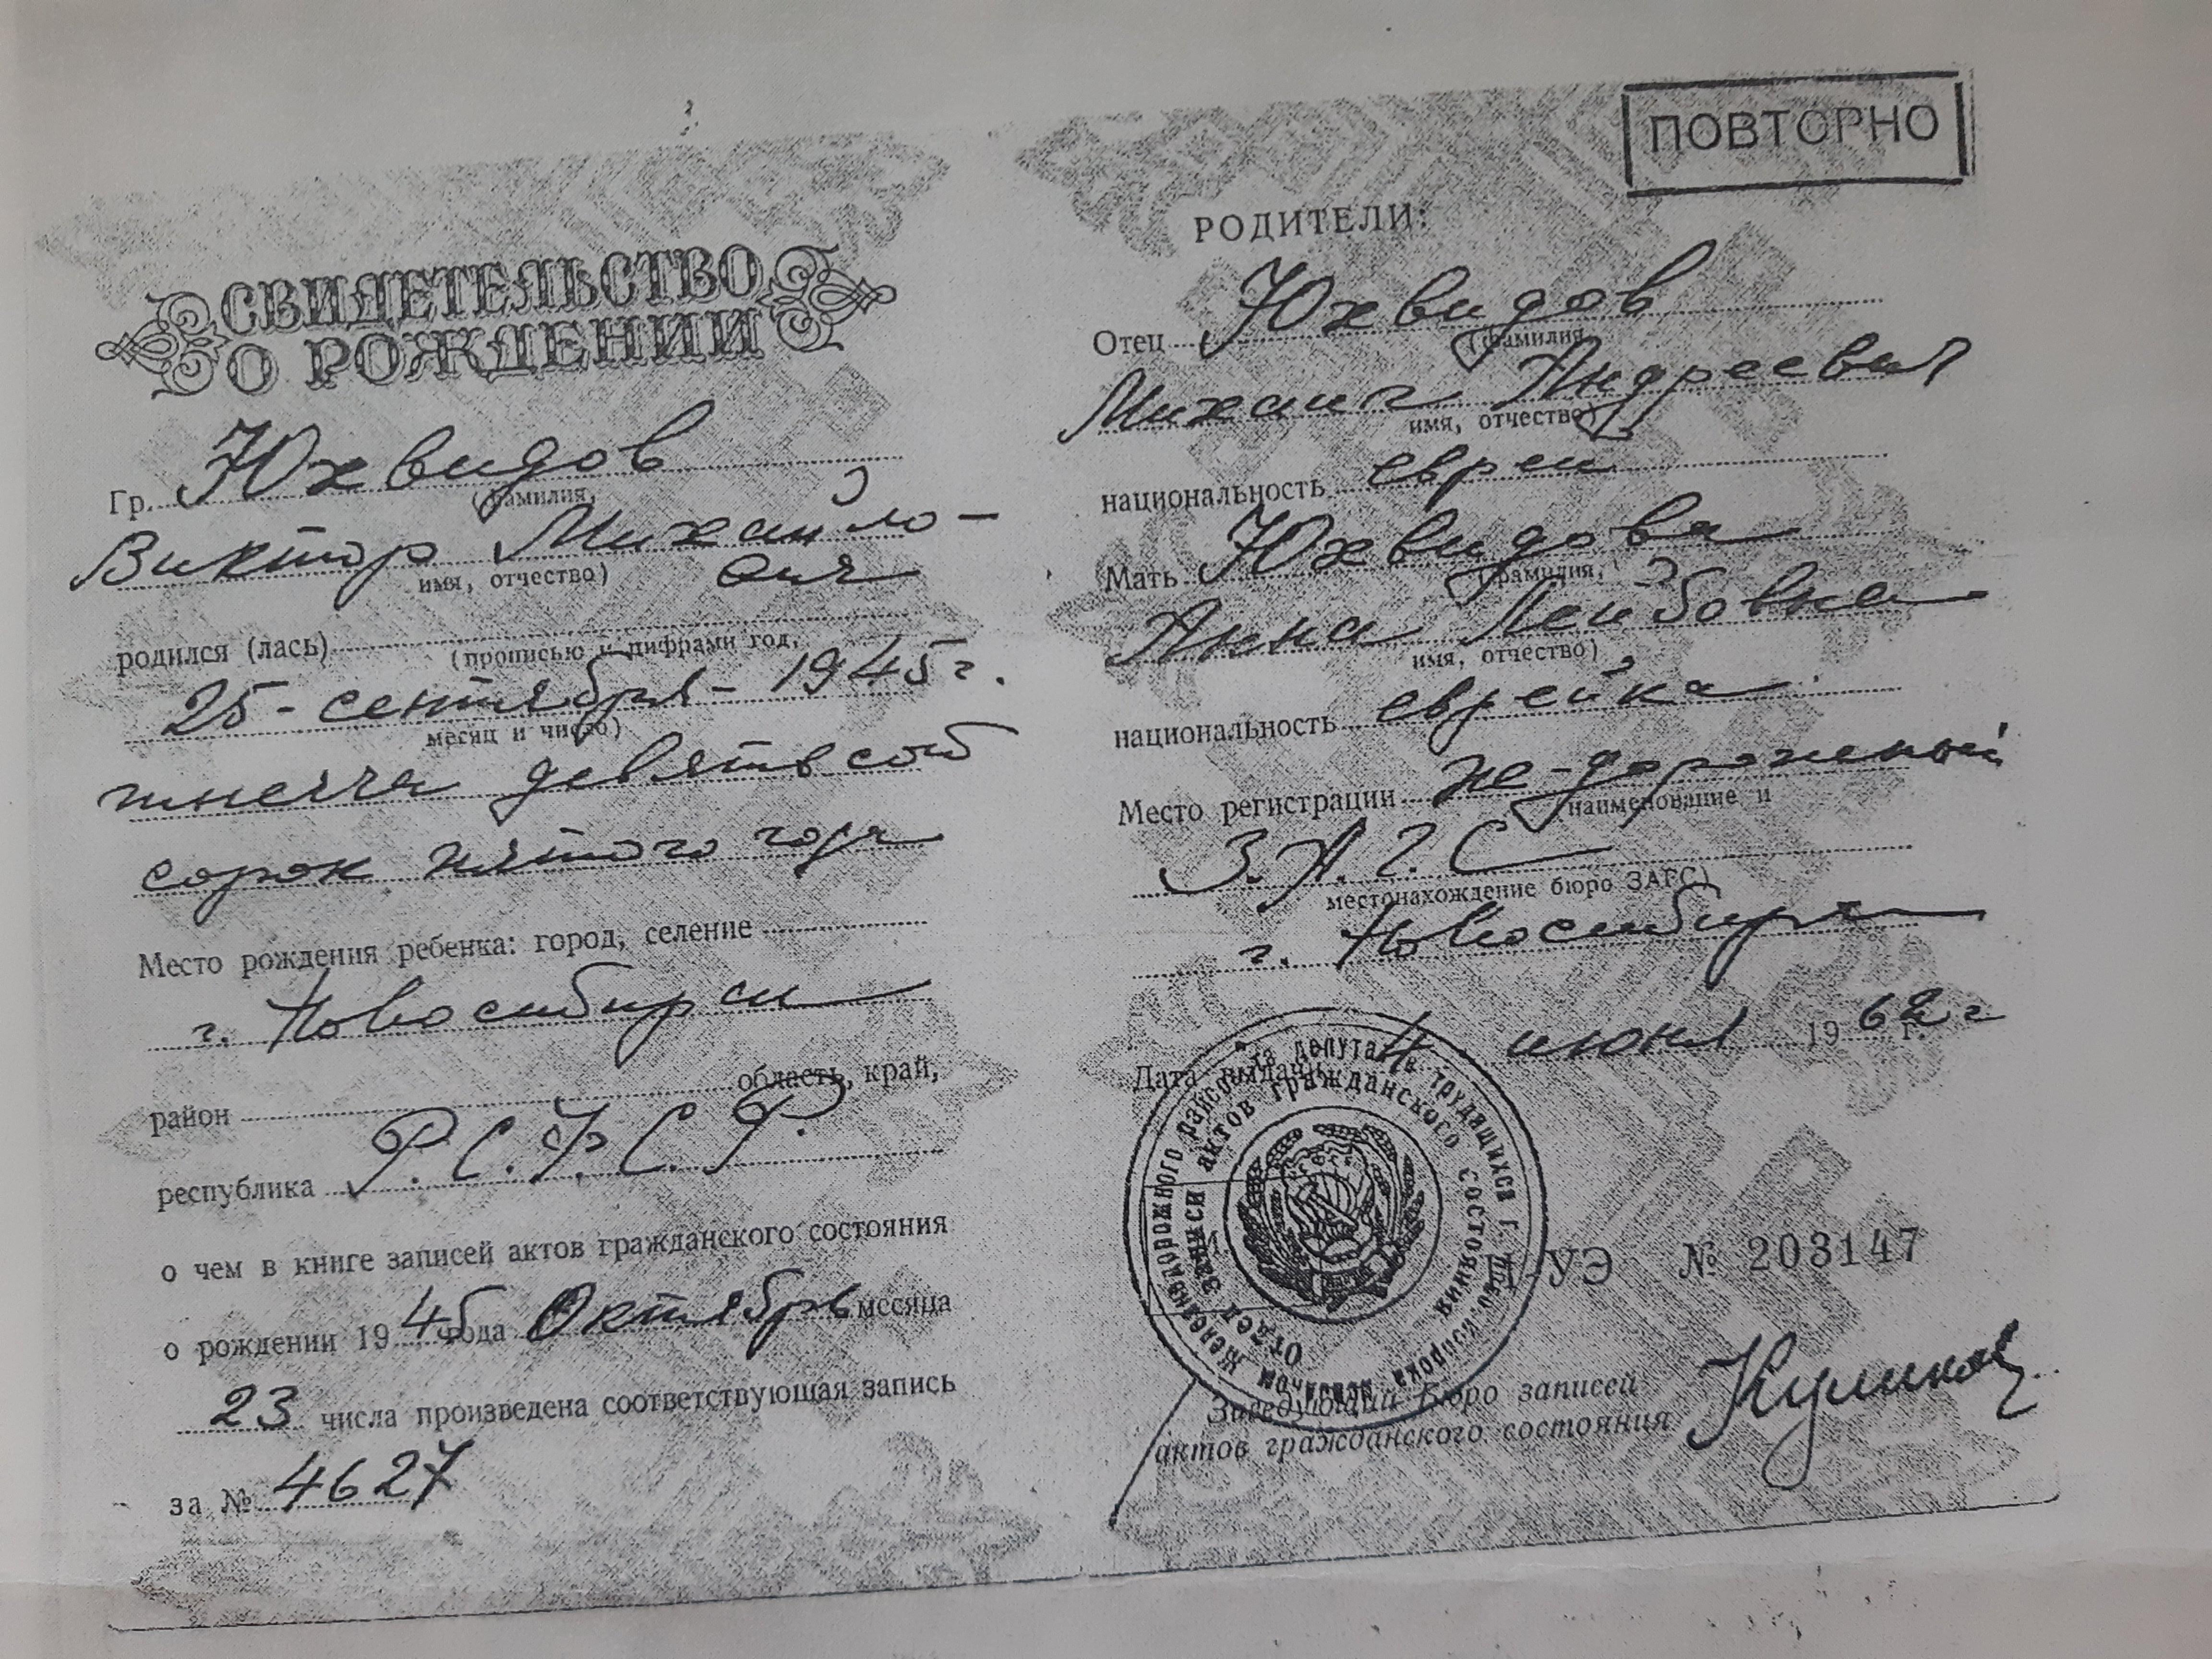 СВИДЕТЕЛЬСТВО
О РОЖДЕНИИ
Гр. Юхвидов
(фамилия,
Виктор Михайло-
имя, отчество) вич
родился (лась)
(прописью и цифрами год,
25 - сентября - 1945 г.
месяц и число)
тысяча девятьсот
сорок пятого года
Место рождения ребенка: город, селение
г. Новосибирск
район область, край,
республика Р.С.Ф.С.Р.
о чем в книге записей актов гражданского состояния
о рождении 1945 года Октябрь месяца
23 числа произведена соответствующая запись
за № 4627
ПОВТОРНО
РОДИТЕЛИ:
Отец Юхвидов
(фамилия,
Михаил Андреевич
имя, отчество)
национальность еврей
Мать Юхвидова
(фамилия,
Анна Лейбовна
имя, отчество)
национальность еврейка
Место регистрации же-дорожный
наименование и
З.А.Г.С
местонахождение бюро ЗАГС)
г. Новосибирск
Дата выдачи 4 июня 1962 г.
Отдел записи актов гражданского состояния
УЭ № 203147
Заведующий бюро записей
актов гражданского состояния